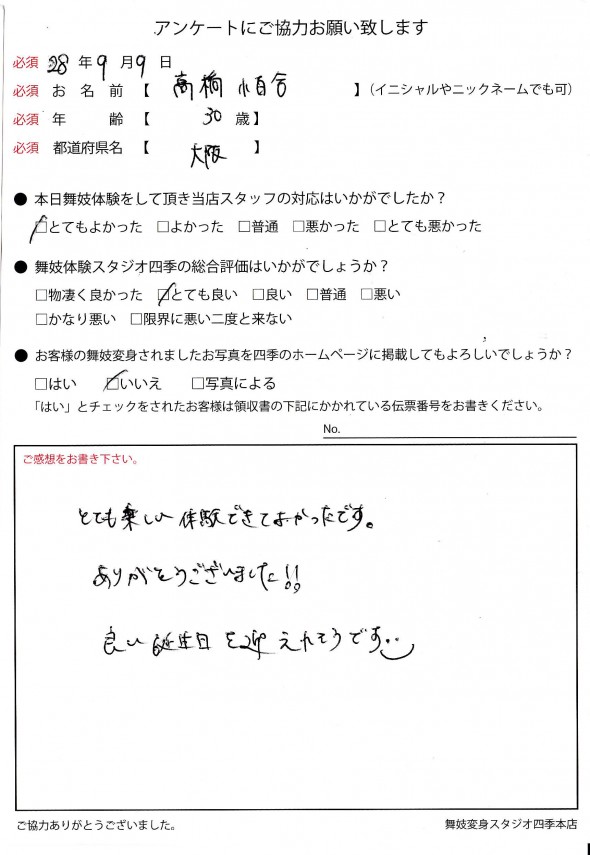 アンケートにご協力お願い致します
必須 28 年 9 月 9 日
必須 お 名 前 【 高橋 小百合 】（イニシャルやニックネームでも可）
必須 年 齢 【 30 歳】
必須 都道府県名 【 大阪 】
● 本日舞妓体験をして頂き当店スタッフの対応はいかがでしたか？
□とてもよかった □よかった □普通 □悪かった □とても悪かった
● 舞妓体験スタジオ四季の総合評価はいかがでしょうか？
□物凄く良かった □とても良い □良い □普通 □悪い
□かなり悪い □限界に悪い二度と来ない
● お客様の舞妓変身されましたお写真を四季のホームページに掲載してもよろしいでしょうか？
□はい □いいえ □写真による
「はい」とチェックをされたお客様は領収書の下記にかかれている伝票番号をお書きください。
No.
ご感想をお書き下さい。
とても楽しい体験できてよかったです。
ありがとうございました!!
良い誕生日を迎えれそうです
ご協力ありがとうございました。
舞妓変身スタジオ四季本店